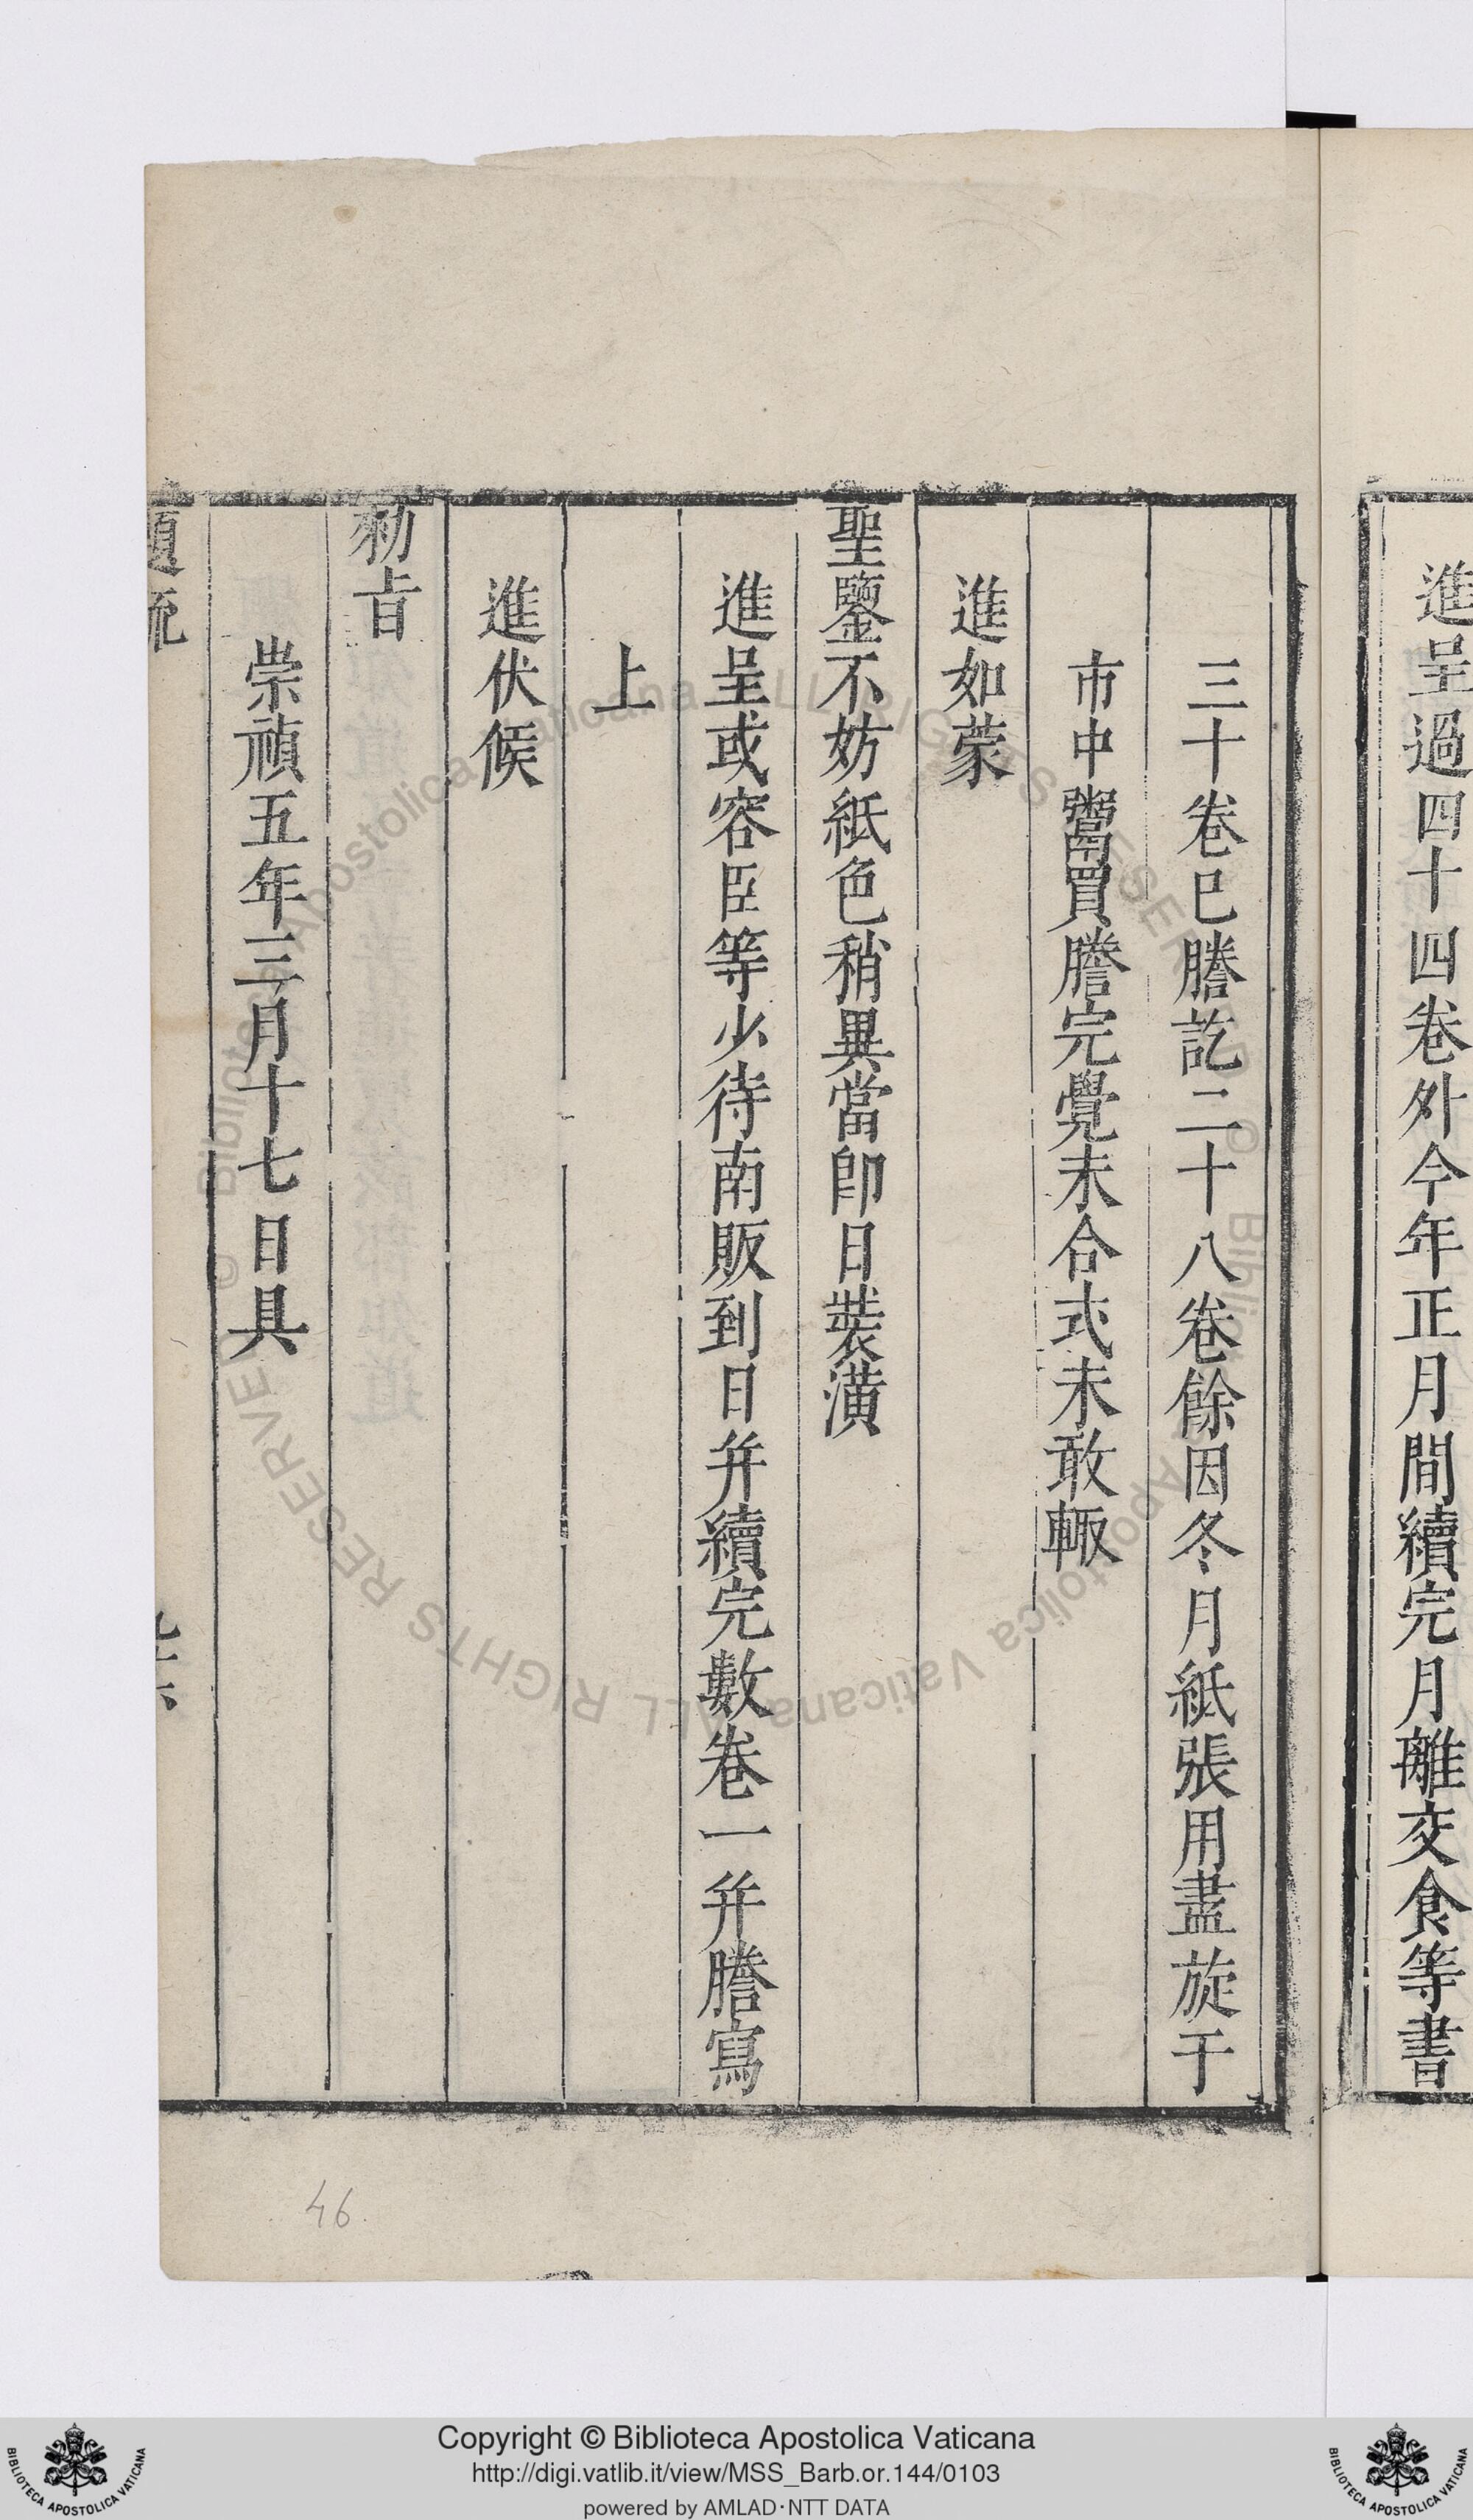 進呈過四十四卷外今年正月間續完月離交食等書
三十卷已謄訖二十八卷餘因冬月紙張用盡旋于
市中鬻買謄完覺未合式未敢輙
進如蒙
聖鑒不妨紙色稍異當卽日裝潢
進呈或容臣等少待南販到日并續完數卷一并謄寫
上
進伏候
勅旨
崇禎五年三月十七日具
46
Copyright © Biblioteca Apostolica Vaticana
http://digi.vatlib.it/view/MSS_Barb.or.144/0103
powered by AMLAD·NTT DATA
BIBLIOTECA APOSTOLICA VATICANA
BIBLIOTECA APOSTOLICA VATICANA
© Biblioteca Apostolica Vaticana ALL RIGHTS RESERVED
© Biblioteca Apostolica Vaticana ALL RIGHTS RESERVED